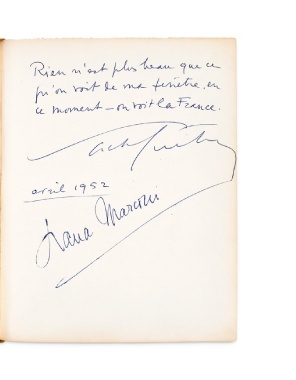 Rien n'est plus beau que ce
qu'on voit de ma fenêtre, en
ce moment – on voit la France.
Sacha Guitry
avril 1952
Lana Marconi